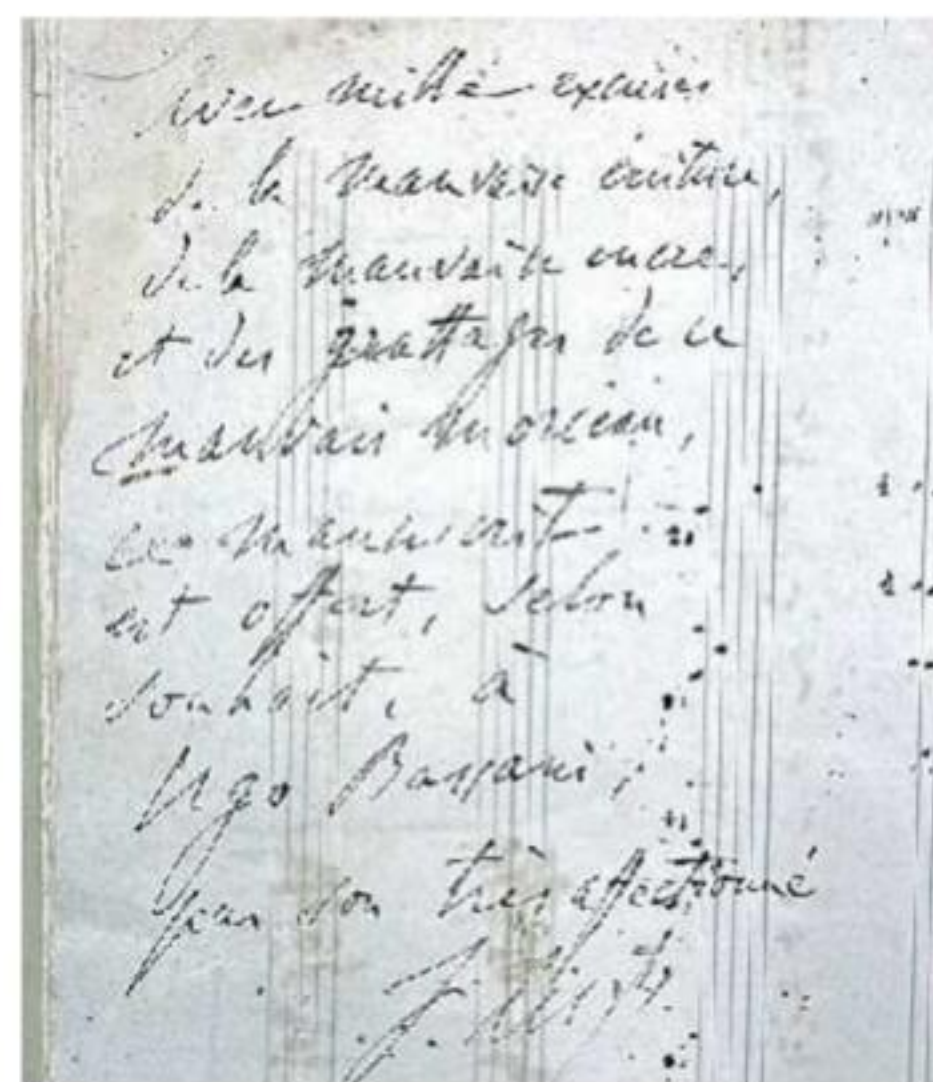 Avec mille excuses
de la mauvaise écriture,
de la mauvaise encre,
et des grattages de ce
mauvais morceau,
ce manuscrit
est offert, selon
souhait, à
Ugo Bassani,
par son très affectionné
F. Liszt